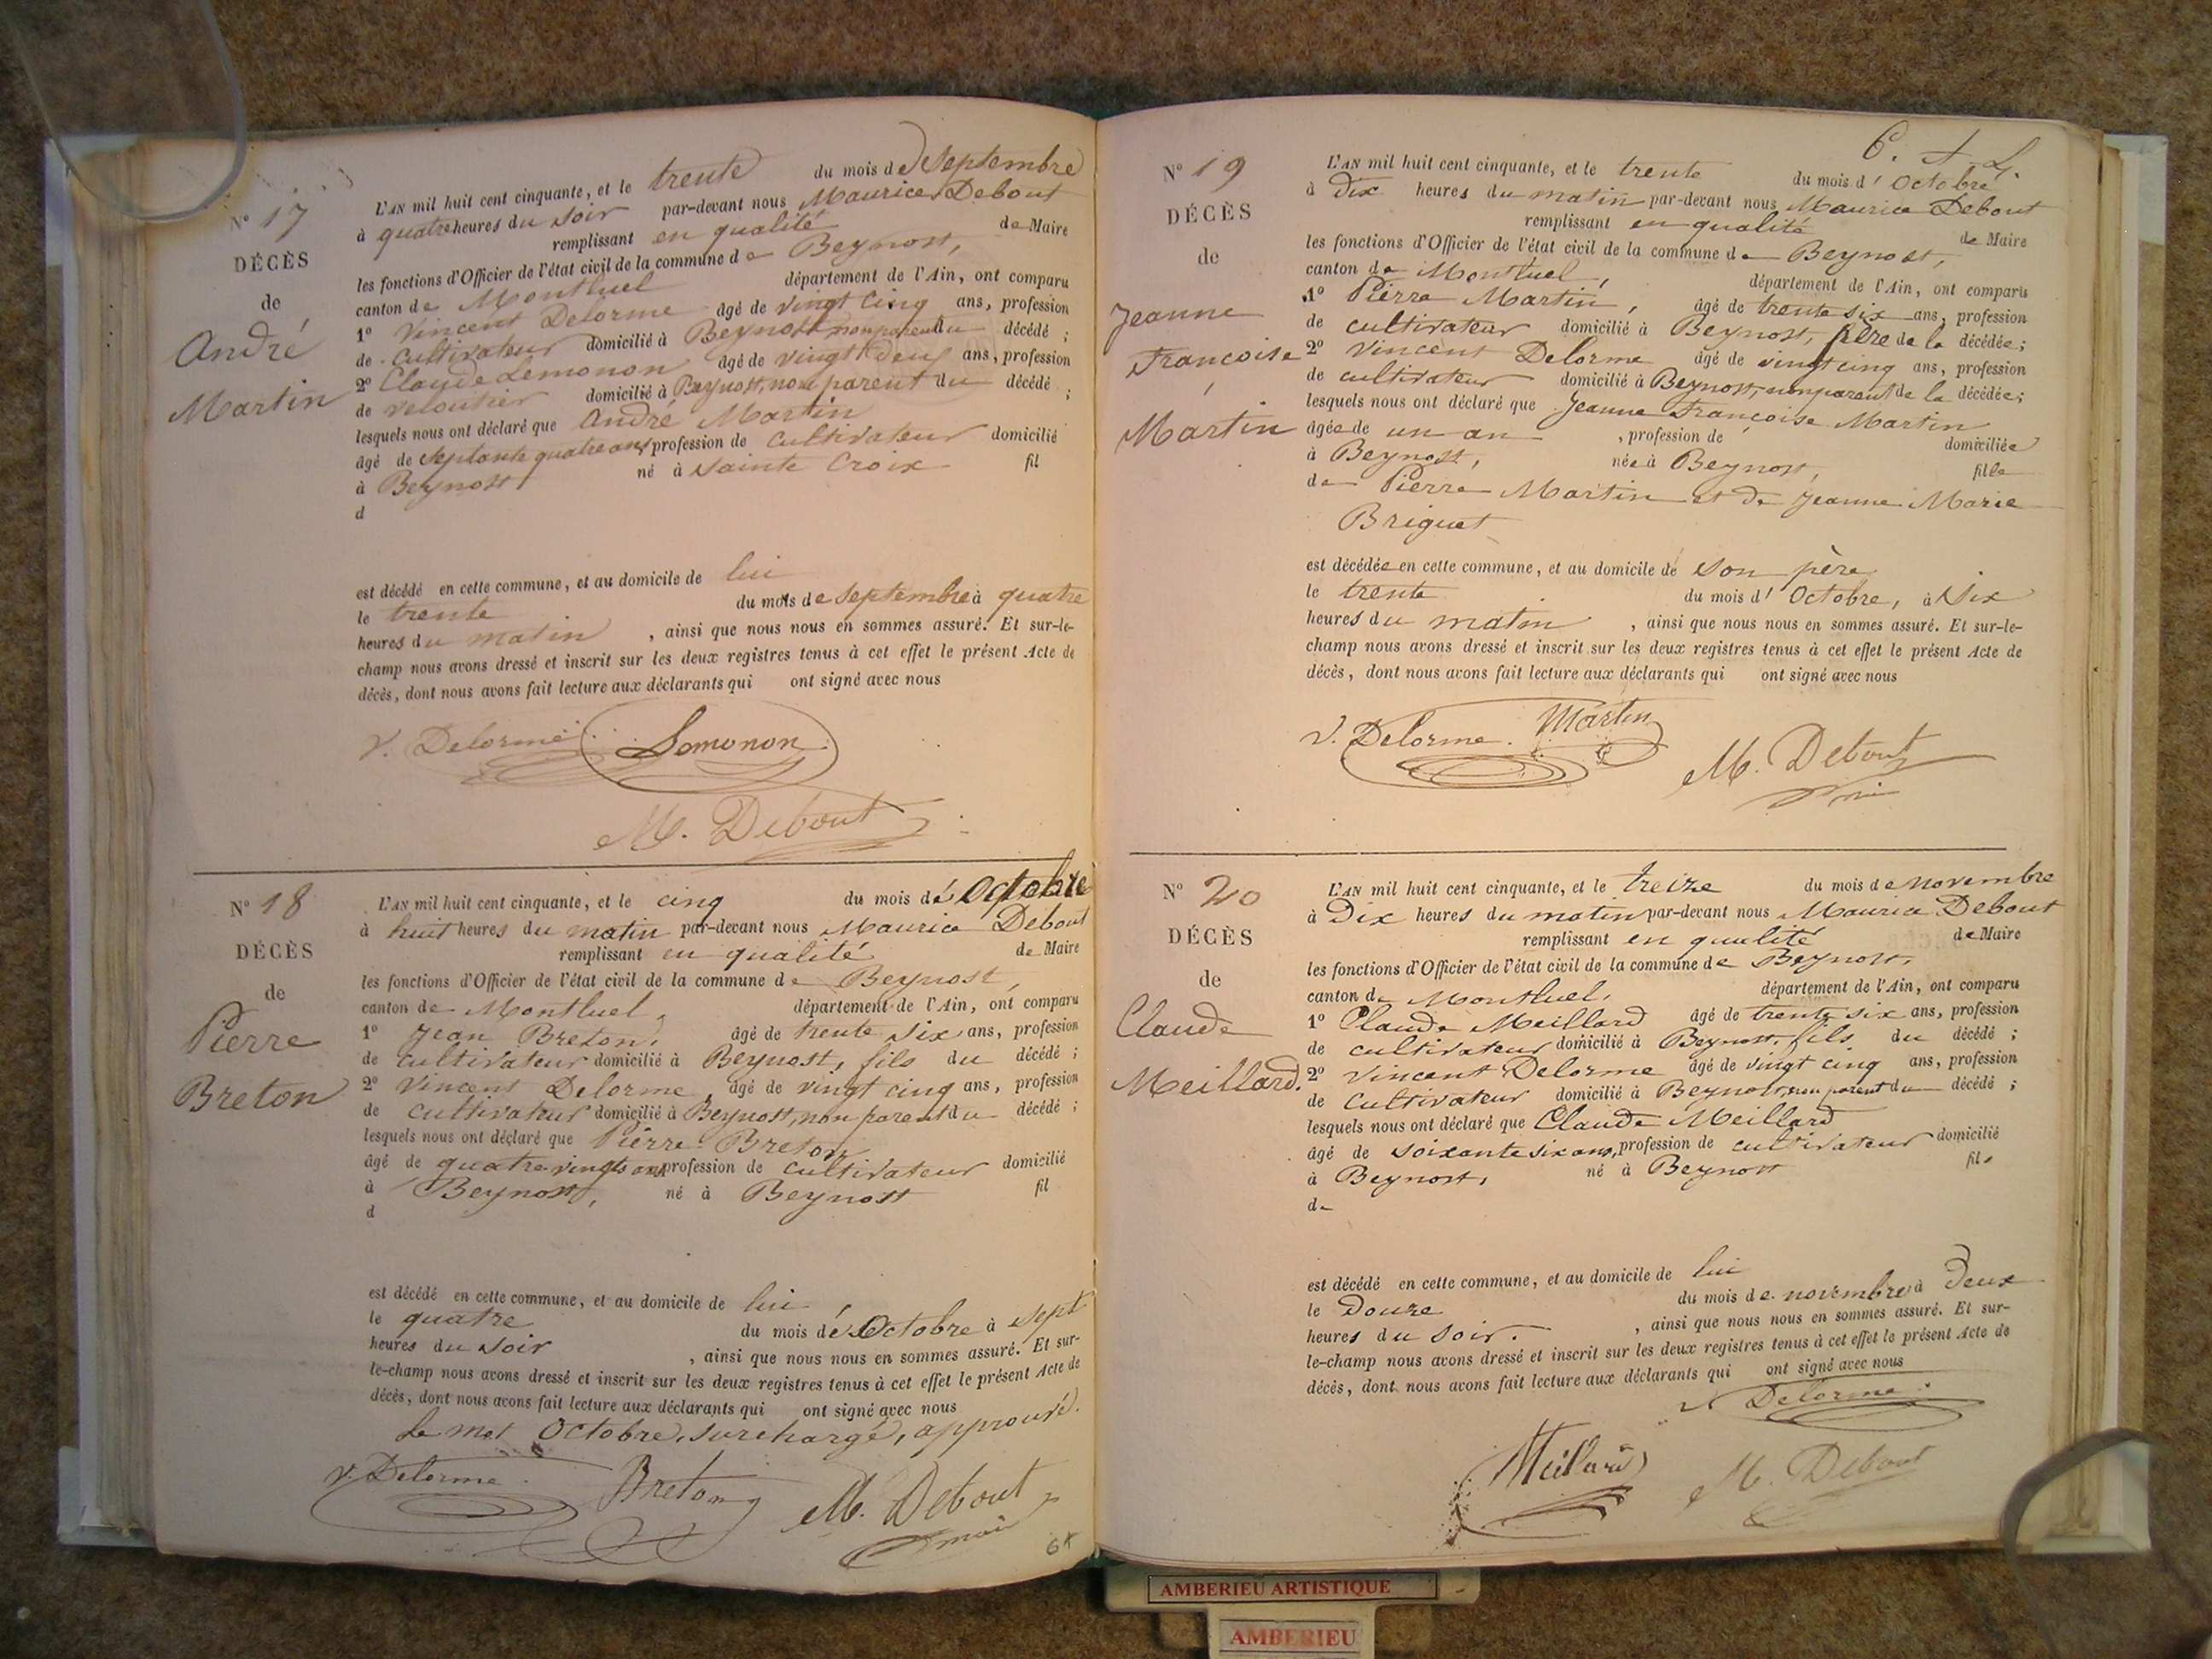 N° 17
DÉCÈS
de
André
Martin
L'AN mil huit cent cinquante, et le trente du mois de Septembre
à quatre heures du soir par-devant nous Maurice Debout
remplissant en qualité de Maire
les fonctions d'Officier de l'état civil de la commune de Beynost,
canton de Montluel département de l'Ain, ont comparu
1° Vincent Delorme âgé de vingt cinq ans, profession
de cultivateur domicilié à Beynost non parent du décédé ;
2° Claude Lemonon âgé de vingt deux ans, profession
de veloutier domicilié à Beynost, non parent du décédé ;
lesquels nous ont déclaré que André Martin
âgé de septante quatre ans, profession de cultivateur domicilié
à Beynost, né à Sainte Croix fil
d
est décédé en cette commune, et au domicile de lui
le trente du mois de septembre à quatre
heures du matin , ainsi que nous nous en sommes assuré. Et sur-le-
champ nous avons dressé et inscrit sur les deux registres tenus à cet effet le présent Acte de
décès, dont nous avons fait lecture aux déclarants qui ont signé avec nous
V. Delorme Lemonon
M. Debout
N° 18
DÉCÈS
de
Pierre
Breton
L'AN mil huit cent cinquante, et le cinq du mois d' Octobre
à huit heures du matin par-devant nous Maurice Debout
remplissant en qualité de Maire
les fonctions d'Officier de l'état civil de la commune de Beynost,
canton de Montluel, département de l'Ain, ont comparu
1° Jean Breton, âgé de trente six ans, profession
de cultivateur domicilié à Beynost, fils du décédé ;
2° Vincent Delorme âgé de vingt cinq ans, profession
de cultivateur domicilié à Beynost, non parent du décédé ;
lesquels nous ont déclaré que Pierre Breton
âgé de quatre vingts ans profession de cultivateur domicilié
à Beynost, né à Beynost fil
d
est décédé en cette commune, et au domicile de lui
le quatre du mois d' Octobre à sept
heures du soir , ainsi que nous nous en sommes assuré. Et sur-
le-champ nous avons dressé et inscrit sur les deux registres tenus à cet effet le présent Acte de
décès, dont nous avons fait lecture aux déclarants qui ont signé avec nous
Le mot Octobre, surchargé, approuvé.
V. Delorme Breton M. Debout
N° 19
DÉCÈS
de
Jeanne
Françoise
Martin
L'AN mil huit cent cinquante, et le trente du mois d' Octobre
à Dix heures du matin par-devant nous Maurice Debout
remplissant en qualité de Maire
les fonctions d'Officier de l'état civil de la commune de Beynost,
canton de Montluel, département de l'Ain, ont comparu
1° Pierre Martin, âgé de trente six ans, profession
de cultivateur domicilié à Beynost, père de la décédée ;
2° Vincent Delorme âgé de vingt cinq ans, profession
de cultivateur domicilié à Beynost, non parent de la décédée ;
lesquels nous ont déclaré que Jeanne Françoise Martin
âgée de un an , profession de domiciliée
à Beynost, née à Beynost, fille
de Pierre Martin et de Jeanne Marie
Briguet
est décédée en cette commune, et au domicile de son père
le trente du mois d' Octobre, à Six
heures du matin , ainsi que nous nous en sommes assuré. Et sur-le-
champ nous avons dressé et inscrit sur les deux registres tenus à cet effet le présent Acte de
décès, dont nous avons fait lecture aux déclarants qui ont signé avec nous
V. Delorme. Martin
M. Debout
N° 20
DÉCÈS
de
Claude
Meillard.
L'AN mil huit cent cinquante, et le treize du mois de novembre
à Dix heures du matin par-devant nous Maurice Debout
remplissant en qualité de Maire
les fonctions d'Officier de l'état civil de la commune de Beynost,
canton de Montluel, département de l'Ain, ont comparu
1° Claude Meillard âgé de trente six ans, profession
de cultivateur domicilié à Beynost, fils du décédé ;
2° Vincent Delorme âgé de vingt cinq ans, profession
de cultivateur domicilié à Beynost, non parent du décédé ;
lesquels nous ont déclaré que Claude Meillard
âgé de soixante six ans, profession de cultivateur domicilié
à Beynost, né à Beynost fils
de
est décédé en cette commune, et au domicile de lui
le Douze du mois de novembre à Deux
heures du soir. , ainsi que nous nous en sommes assuré. Et sur-
le-champ nous avons dressé et inscrit sur les deux registres tenus à cet effet le présent Acte de
décès, dont nous avons fait lecture aux déclarants qui ont signé avec nous
V Delorme
Meillard M. Debout
AMBERIEU ARTISTIQUE
AMBERIEU